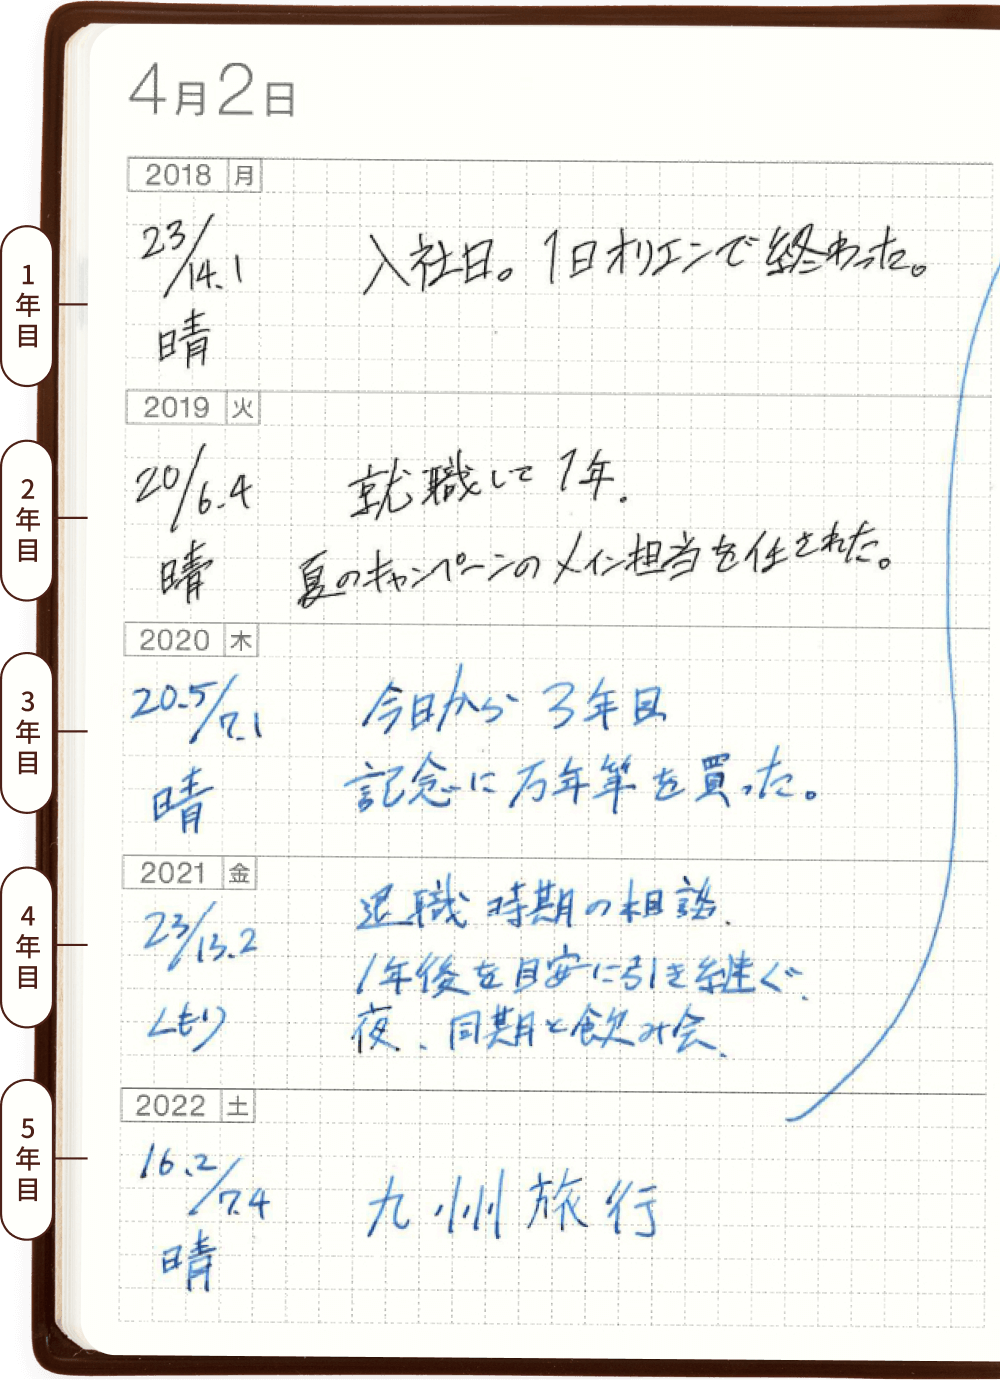 4月2日
2018 月
23/14.1
晴
入社日。1日オリエンで終わった。
1年目
2019 火
20/6.4
晴
就職して1年.
夏のキャンペーンのメイン担当を任された。
2年目
2020 木
20.5/7.1
晴
今日から3年目
記念に万年筆を買った。
3年目
2021 金
23/13.2
くもり
退職時期の相談.
1年後を目安に引き継ぐ.
夜、同期と飲み会.
4年目
2022 土
16.2/7.4
晴
九州旅行
5年目